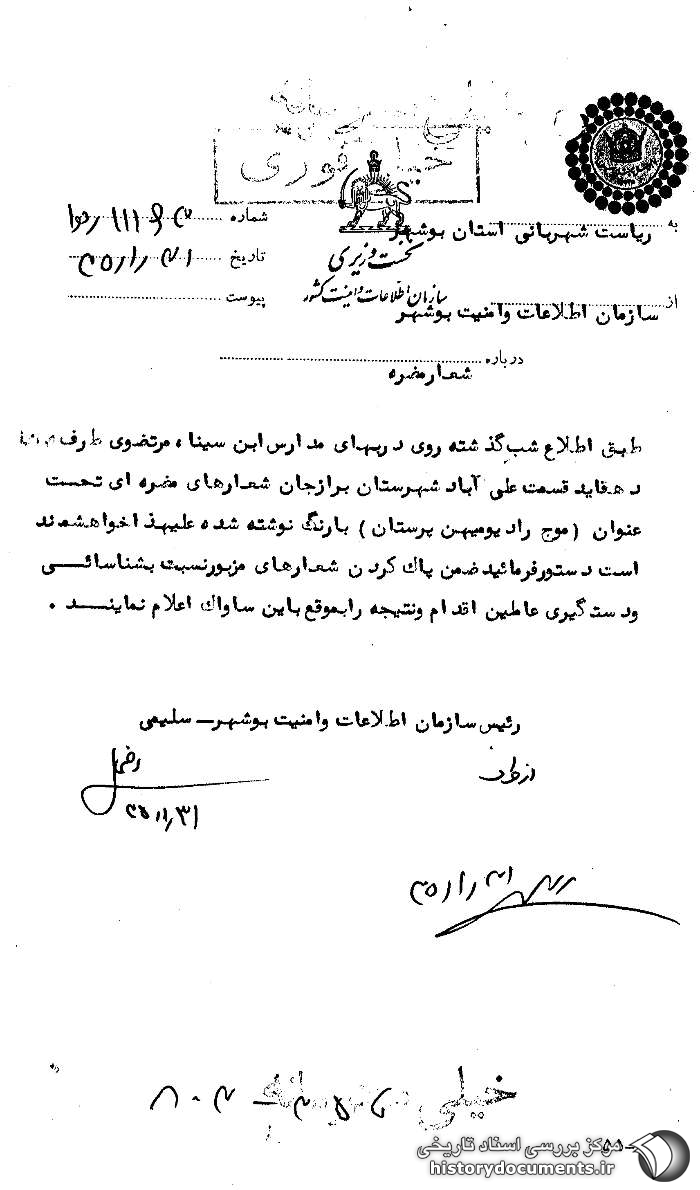 خیلی محرمانه
خیلی فوری
به ریاست شهربانی استان بوشهر
شماره
نخست وزیری
تاریخ
سازمان اطلاعات و امنیت کشور
پیوست
از سازمان اطلاعات وامنیت بوشهر
درباره شعار مضره
طبق اطلاع شب گذشته روی دربهای مدارس ابن سینا، مرتضوی طرف
دهقاید قسمت علی آباد شهرستان برازجان شعارهای مضره ای تحت
عنوان (موج رادیو میهن پرستان) با رنگ نوشته شده علیهذا خواهشمند
است دستور فرمائید ضمن پاک کردن شعارهای مزبور نسبت بشناسائی
ودستگیری عاملین اقدام ونتیجه را بموقع باین ساواک اعلام نمایند .
رئیس سازمان اطلاعات وامنیت بوشهر ــ سلیمی
از طرف
خیلی محرمانه
۵۵
مرکز بررسی اسناد تاریخی
historydocuments.ir